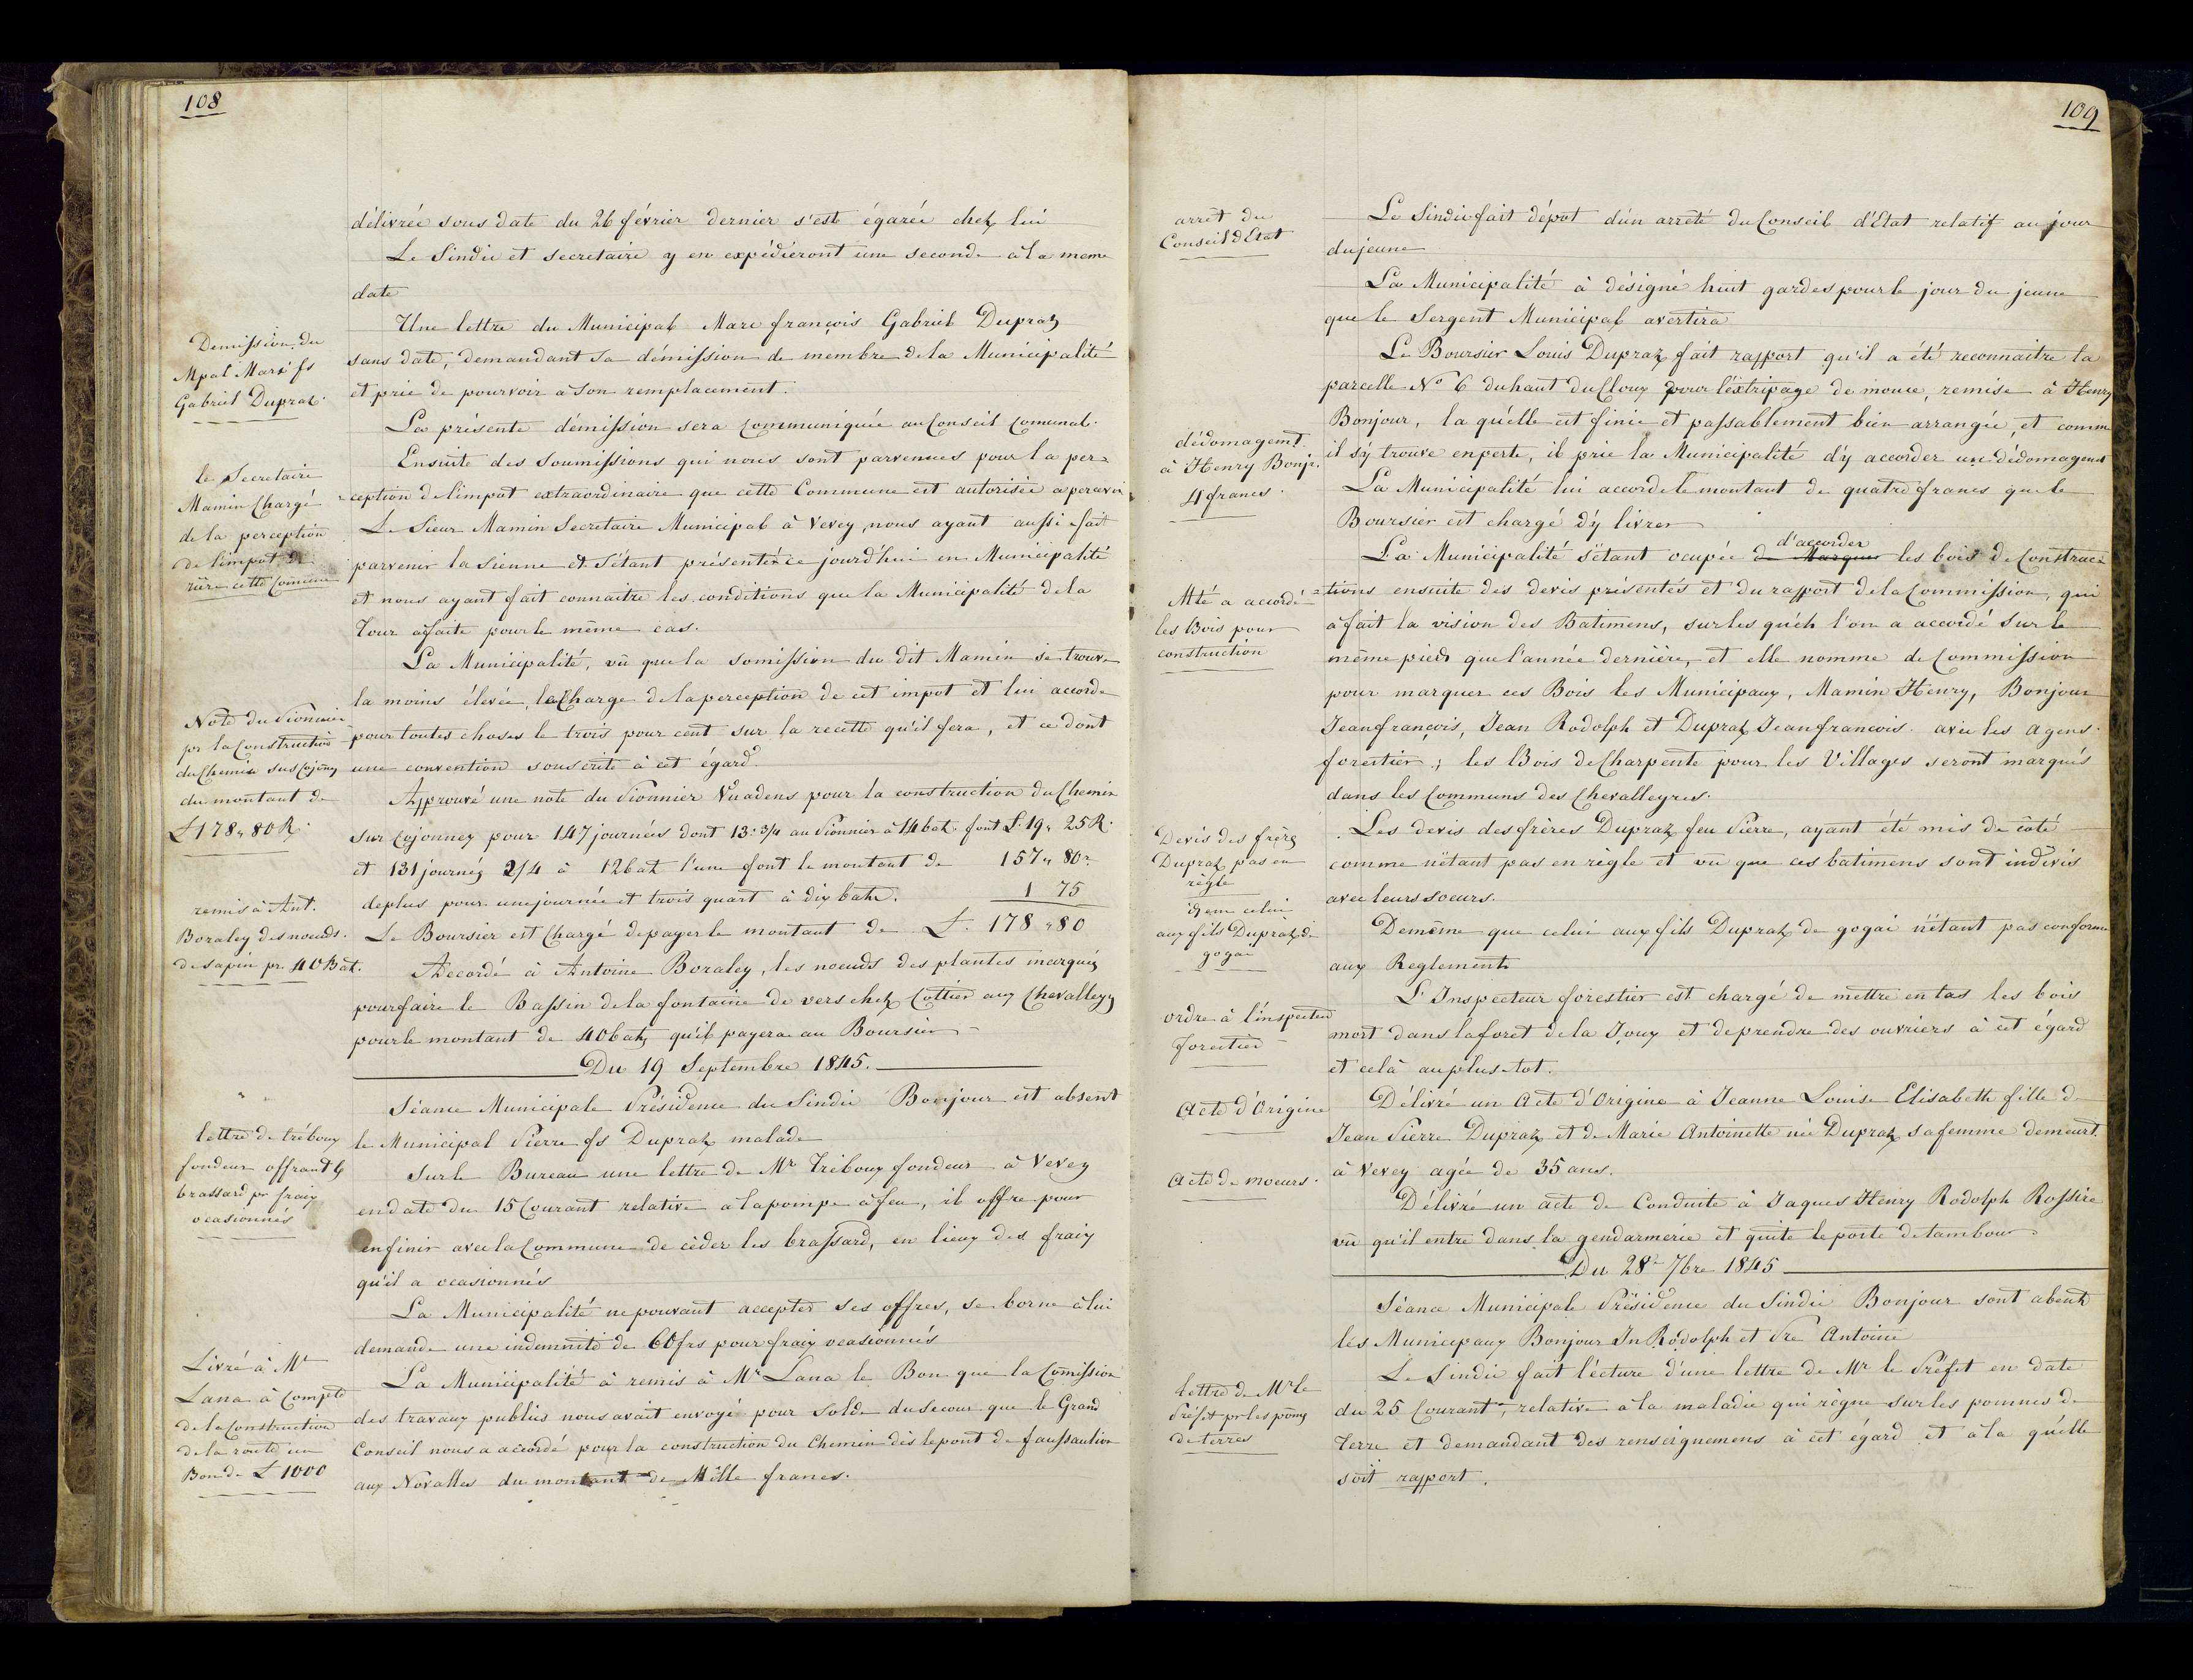 108
délivrée sous date du 26 février dernier s'est égarée chez lui
Le Sindic et secretaire y en expédieront une seconde à la meme
date
Demission du
Mpal Marc fs
Gabriel Dupraz.
Une lettre du Municipal Marc françois Gabriel Dupraz
sans date, demandant sa démission de membre de la Municipalité
et prie de pourvoir a son remplacement.
La présente démission sera communiquée au Conseil Comunal.
le Secretaire
Mamin Chargé
de la perception
de l'impot de
rière cette Comune
Ensuite des Soumissions qui nous sont parvenues pour la per=
=ception de l'impot extraordinaire que cette Commune est autorisée a peravoir
Le Sieur Mamin Secretaire Municipal à Vevey, nous ayant aussi fait
parvenir la Sienne et S'étant présenté ce jourd'hui en Municipalité
et nous ayant fait connaitre les conditions que la Municipalité de la
Tour a faite pour le même cas.
La Municipalité, vû que la somission du dit Mamin se trouve
la moins élevée, le Charge de la perception de cet impot et lui accorde
pour toutes choses le trois pour cent sur la recette qu'il fera, et ce dont
une convention souscrite à cet égard.
Note du Pionnier
pr la Construction
du Chemin sus Cojonney
du montant de
£178 " 80 R.
Approuvé une note du Pionnier Vuadens pour la construction du Chemin
sur Cojonney pour 147 journées dont 13 3/4 au Pionnier à 14 batz font £. 19 " 25 R.
et 131 journés 2/4 à 12 batz l'une font le montant de 157 " 80 "
de plus pour une journée et trois quart à dix batz. 1 75
Le Boursier est Chargé de payer le montant de £. 178 " 80
remis à Ant.
Boraley des noeuds
de sapin pr 40 Batz.
Accordé à Antoine Boraley, les noeuds des plantes marqués
pour faire le Bassin de la fontaine de vers chez Cottier aux Chevalleyres
pour le montant de 40 batz qu'il payera au Boursier
Du 19 Septembre 1845.
Séance Municipale Présidence du Sindic Bonjour est absent
le Municipal Pierre fs Dupraz malade
lettre de tréboux
fondeur offrant les
brassard pr fraix
ocasionnés
Sur le Bureau une lettre de Mr Tréboux fondeur à Vevey
en date du 15 Courant relative a la pompe à feu, il offre pour
en finir avec la Commune de céder les brassard, en lieux des fraix
qu'il a ocasionnés
La Municipalité ne pouvant accepter ses offres, se borne à lui
demande une indemnité de 60 frs pour fraix ocasionnés
Livré à Mr
Lana à Compte
de la Construction
de la route un
Bon de £ 1000
La Municipalité à remis à Mr Lana le Bon que la Comission
des travaux publics nous avait envoyé pour solde du Secour que le Grand
Conseil nous a accordé pour la construction du Chemin dès le pont de faussaulion
aux Novalles du montant de Mille francs.
109
arret du
Conseil d'Etat
Le Sindic fait dépot d'un arreté du Conseil d'Etat relatif au jour
du jeune
La Municipalité à désigné huit gardes pour le jour du jeune
que le Sergent Municipal avertira
Le Boursier Louis Dupraz fait rapport qu'il a été reconnaitre la
parcelle No 6 du haut du Cloux pour l'extripage de mouse, remise à Henry
Bonjour, la qu'elle est finie et passablement bien arrangée, et comme
il s'y trouve en perte, il prie la Municipalité d'y accorder un dédomagent
dédomagemt.
à Henry Bonjr.
4 francs.
La Municipalité lui accorde le montant de quatre francs que le
Boursier est chargé d'y livrer
La Municipalité s'étant ocupée de Marquer d'accorder les bois de Construc=
=tions ensuite des devis présentés et du rapport de la Commission, qui
à fait la vision des Batimens, sur les qu'els l'on a accordé sur le
même pied que l'année dernière, et elle nomme de Commission
pour marquer ces Bois les Municipaux, Mamin Henry, Bonjour
Jean françois, Jean Rodolph et Dupraz Jean francois avec les agens
forestier; les Bois de Charpente pour les Villages seront marqués
dans les Communs des Chevalleyres.
Mté a accordé
les Bois pour
construction
Devis des frères
Dupraz pas en
règle
Les devis des frères Dupraz feu Pierre, ayant été mis de coté
comme n'étant pas en règle et vû que ces batimens sont indivis
avec leurs soeurs.
idem celui
aux fils Dupraz de
gogai
De même que celui aux fils Dupraz de gogai n'étant pas conforme
aux Reglements
ordre à l'inspecteur
forestier
L'Inspecteur forestier est chargé de mettre en tas les bois
mort dans la foret de la Joux et de prendre des ouvriers à cet égard
et celà au plus-tot.
Acte d'Origine
Délivré un Acte d'Origine à Jeanne Louise Elisabeth fille de
Jean Pierre Dupraz et de Marie Antoinette née Dupraz sa femme demeurt.
à Vevey agée de 35 ans.
Acte de moeurs.
Délivré un acte de Conduite à Jaques Henry Rodolph Rossire
vû qu'il entre dans la gendarmerie et quite le poste de tambour.
Du 28e 7bre 1845
Séance Municipale Présidence du Sindic Bonjour sont absents
les Municipaux Bonjour Jn Rodolph et Pre Antoine
lettre de Mr le
Préfet pr les pomes
de terres
Le Sindic fait lécture d'une lettre de Mr le Préfet en date
du 25 Courant, relative à la maladie qui règne sur les pommes de
Terre et demandant des renseignemens à cet égard et à la qu'elle
soit rapport.